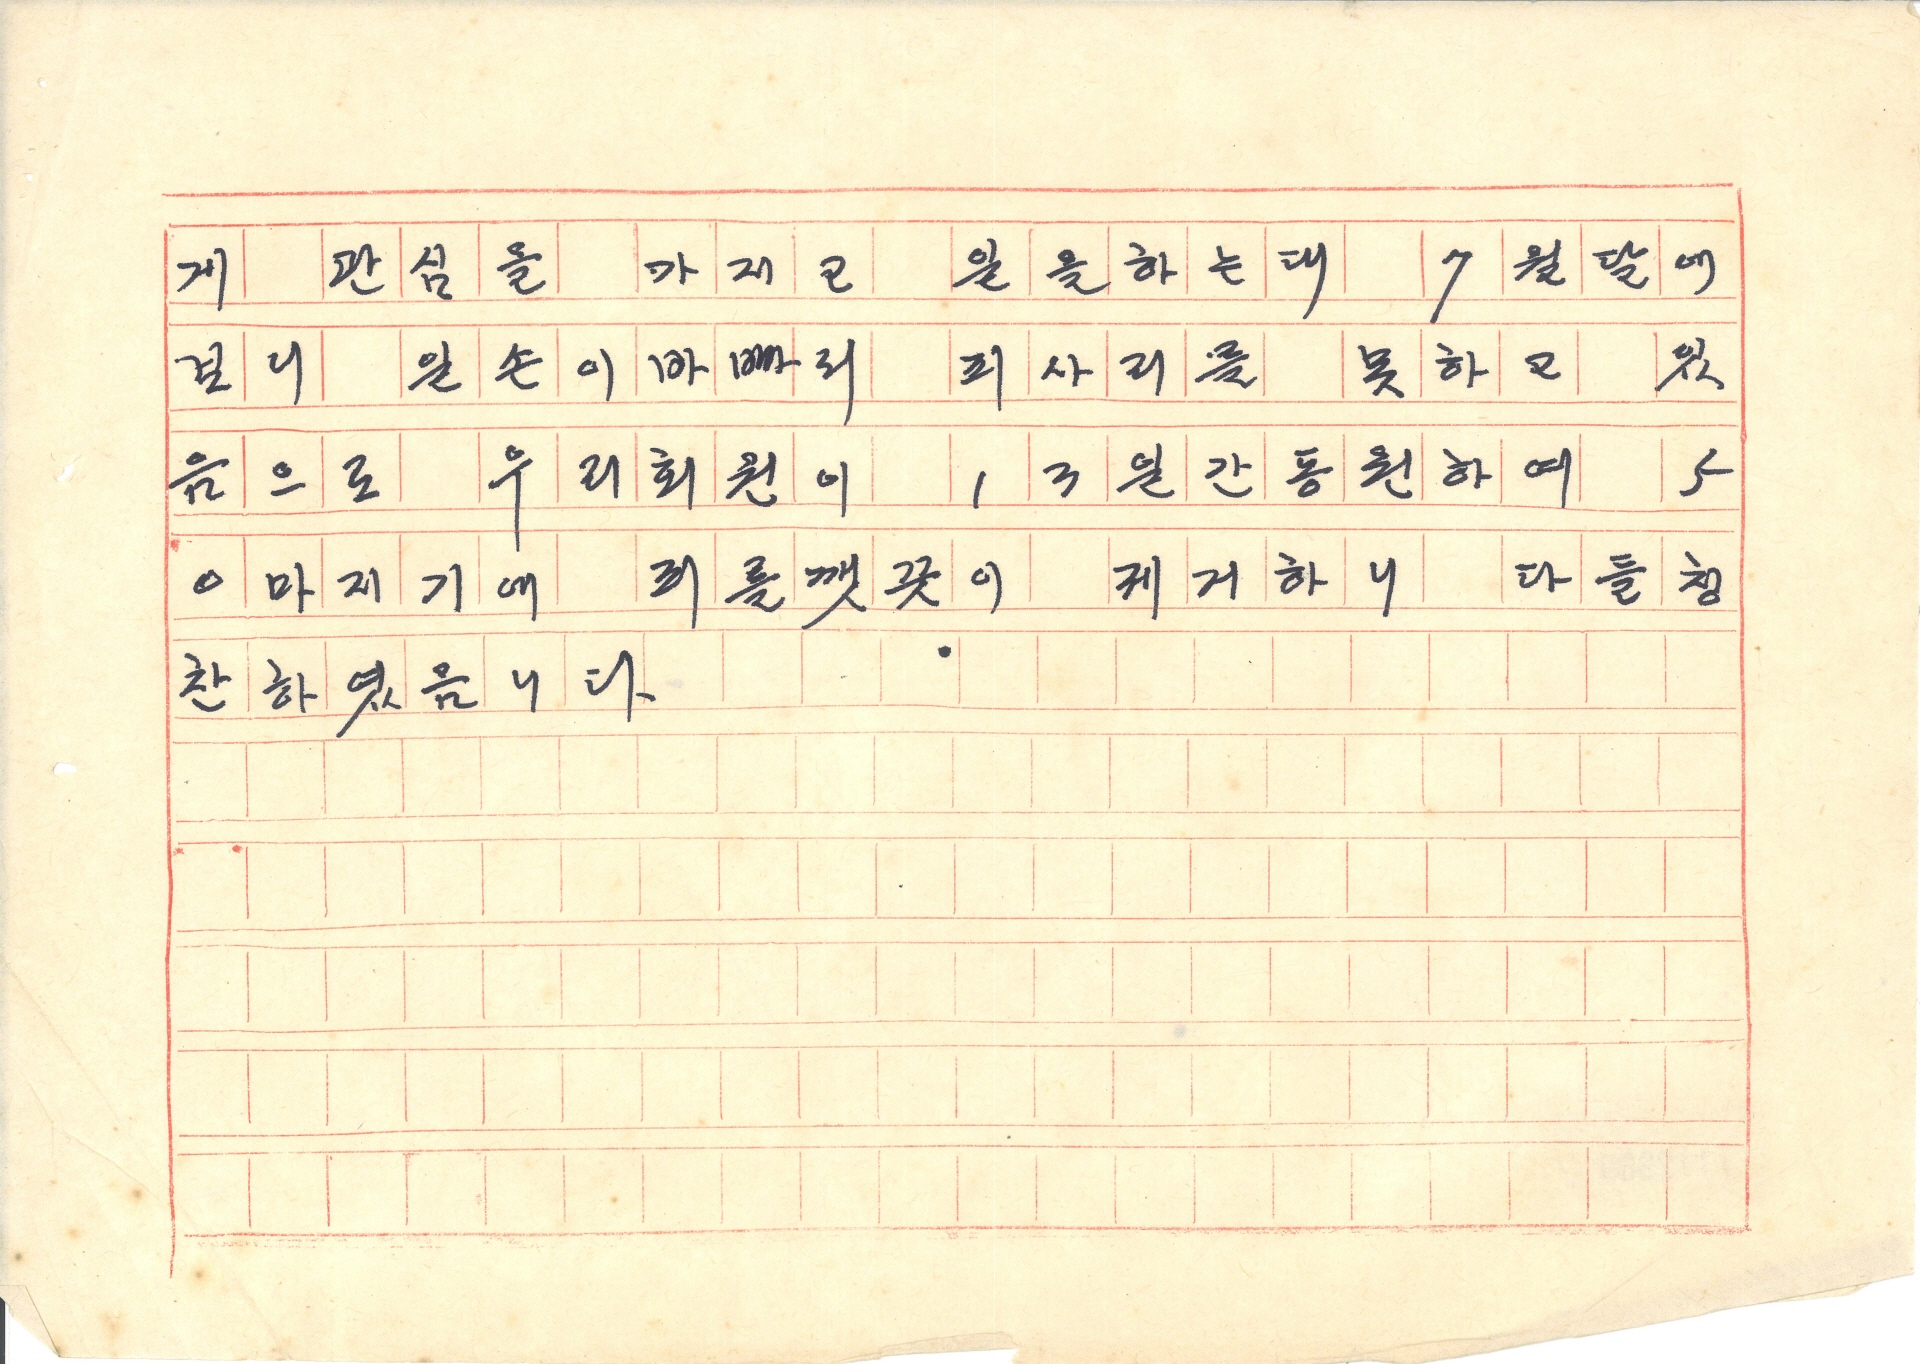 게 관심을 가지고 일을하는대 7월달에
보니 일손이바빠리 피사리를 못하고 있
음으로 우리회원이 13일간동원하여 5
0마지기에 피를깻끗이 제거하니 다들칭
찬하였읍니다.